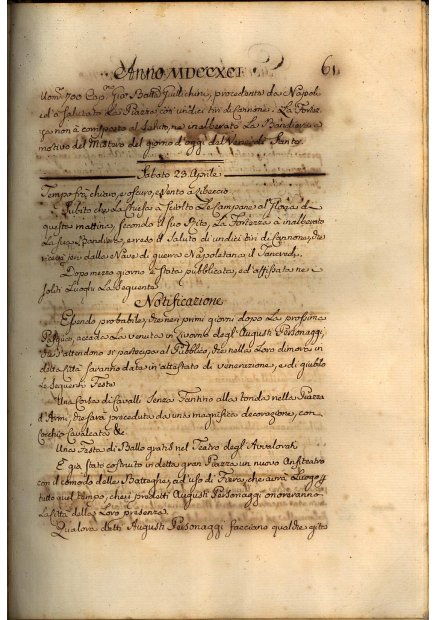 Anno MDCCXCI 61
Uom.ⁱ 700 Cap.ⁿ Gio: Batta procedente da Napoli
ed à salutato La Piazza con undici tiri di Cannone. La Fortez-
za non à corrisposto al Saluto, ne inalberato La Bandiera a
motivo del Matino del giorno d'oggi del Venerdi Santo.
Sabato 23 Aprile
Tempo frà chiaro, e oscuro, e Vento a Libeccio.
Subito che La Chiesa à sciolto Le Campane al Gloria di
questa mattina, secondo il suo Rito, La Fortezza à inalberato
La sua Bandiera, e reso il Saluto di undici tiri di Cannone, che
ricevè jeri dalla Nave di guerra Napoletana il Tancredi.
Dopo mezzo giorno è stata pubblicata, ed affissata ne
soliti Luoghi La seguente
Notificazione
Essendo probabile, che nei primi giorni dopo La prossima
Pasqua, accada La venuta in Livorno degl'Augusti Personaggi,
che s'attendono si partecipa al Pubblico, che nella Loro dimora in
detta Città saranno date in attestato di venerazione, e di giubilo
Le seguenti Feste
Una Corsa di Cavalli Senza Fantino alla tonda nella Piazza
d'Armi, che sarà preceduta da una magnifica decorazione, con
Cocchio, Cavalcata &c.
Una Festa di Ballo gratis nel Teatro degl'Avvalorati
È già stato costruito in detta gran Piazza un nuovo Anfiteatro
con il comodo delle Botteghe, ad uso di Fiera, che avrà Luogo p
tutto quel tempo, che i predetti Augusti Personaggi onoreranno
La Città della Loro presenza.
Qualora detti Augusti Personaggi facciano qualche gita